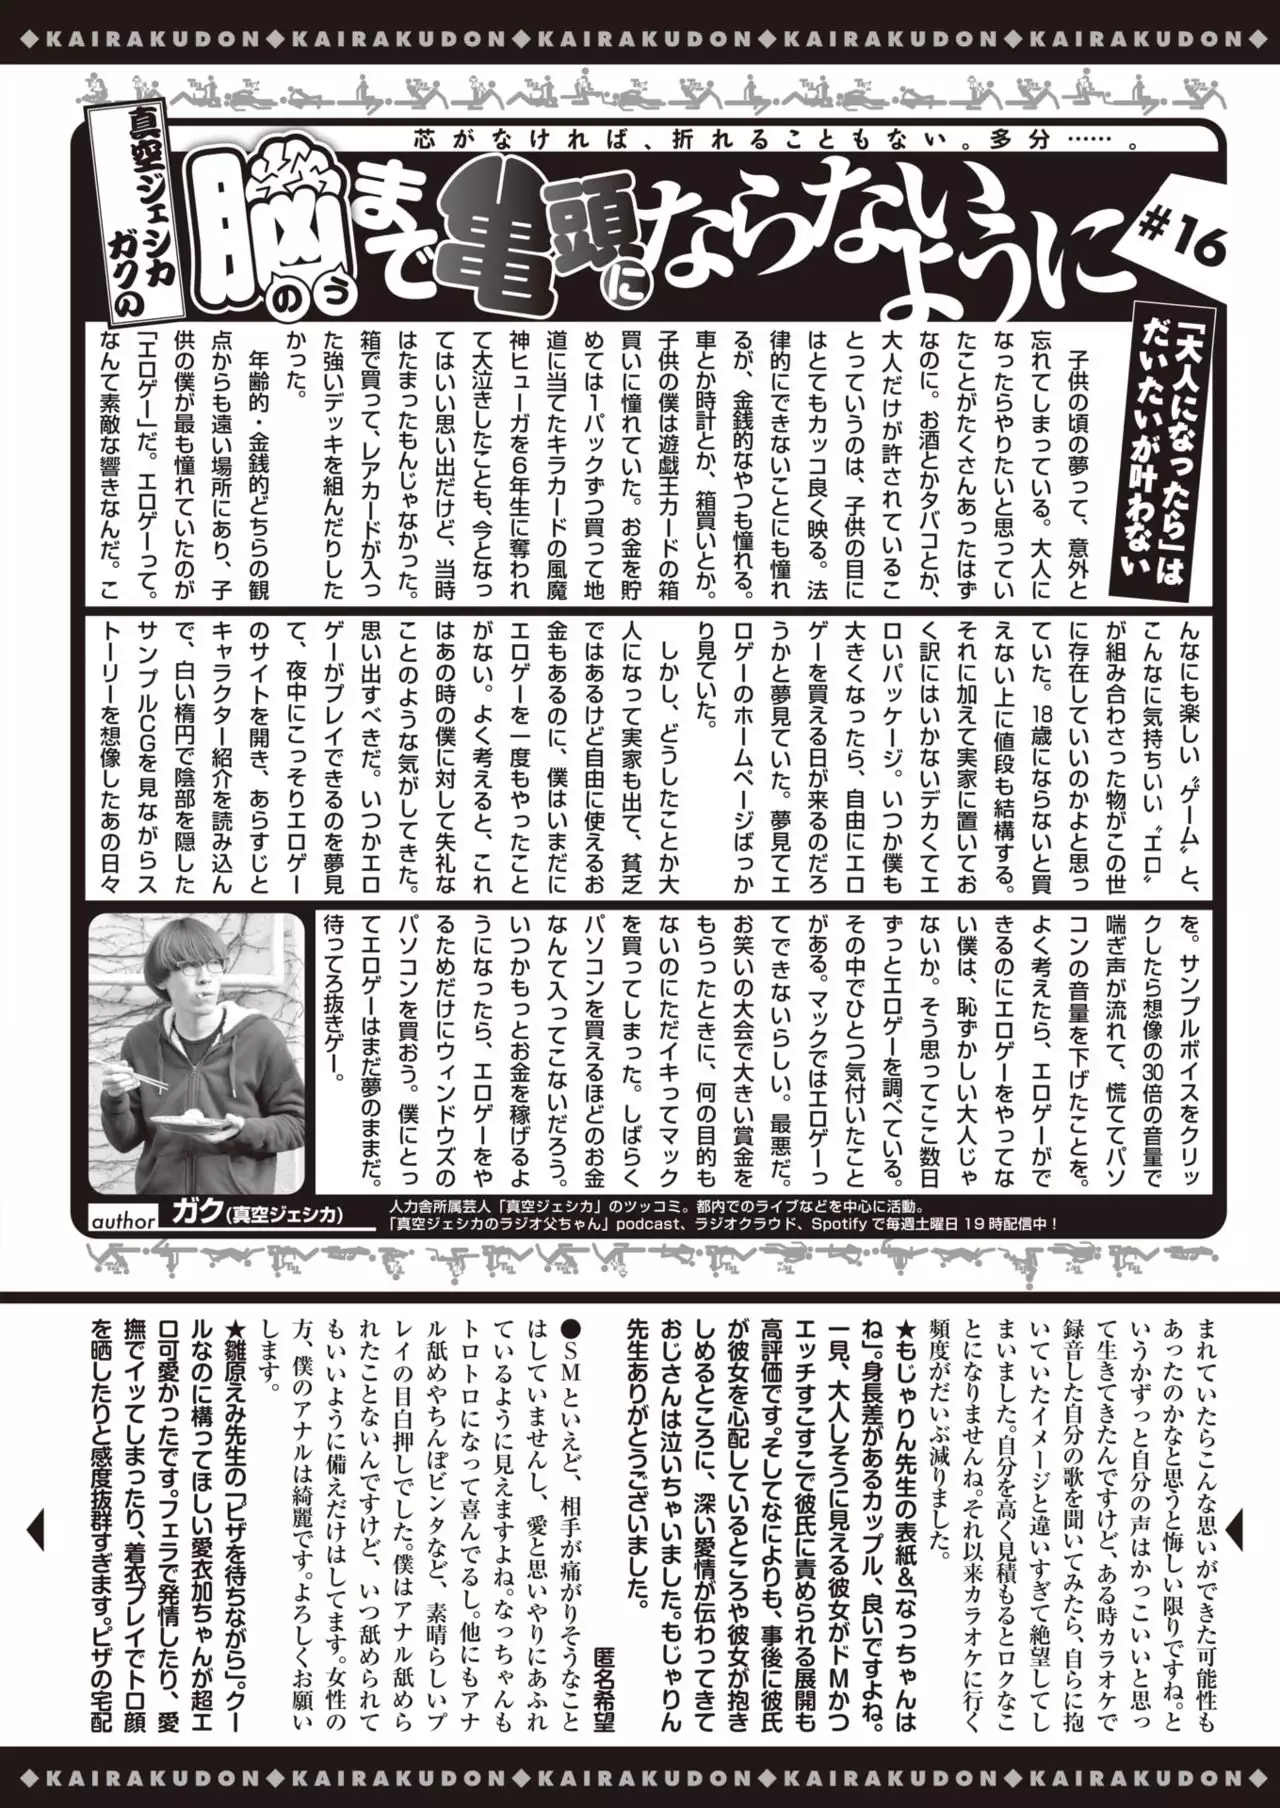 ◆KAIRAKUDON◆KAIRAKUDON◆KAIRAKUDON◆KAIRAKUDON◆KAIRAKUDON◆
芯がなければ、折れることもない。多分……。
真空ジェシカ
ガクの
脳まで亀頭にならないように
のう
#16
「大人になったら」は
だいたいが叶わない
子供の頃の夢って、意外と
忘れてしまっている。大人に
なったらやりたいと思ってい
たことがたくさんあったはず
なのに。お酒とかタバコとか、
大人だけが許されているこ
とっていうのは、子供の目に
はとてもカッコ良く映る。法
律的にできないことにも憧れ
るが、金銭的なやつも憧れる。
車とか時計とか、箱買いとか。
子供の僕は遊戯王カードの箱
買いに憧れていた。お金を貯
めては1パックずつ買って地
道に当てたキラカードの風魔
神ヒューガを6年生に奪われ
て大泣きしたことも、今となっ
てはいい思い出だけど、当時
はたまったもんじゃなかった。
箱で買って、レアカードが入っ
た強いデッキを組んだりした
かった。
年齢的・金銭的どちらの観
点からも遠い場所にあり、子
供の僕が最も憧れていたのが
「エロゲー」だ。エロゲーって。
なんて素敵な響きなんだ。こ
んなにも楽しい〝ゲーム〟と、
こんなに気持ちいい〝エロ〟
が組み合わさった物がこの世
に存在していいのかよと思っ
ていた。18歳にならないと買
えない上に値段も結構する。
それに加えて実家に置いてお
く訳にはいかないデカくてエ
ロいパッケージ。いつか僕も
大きくなったら、自由にエロ
ゲーを買える日が来るのだろ
うかと夢見ていた。夢見てエ
ロゲーのホームページばっか
り見ていた。
しかし、どうしたことか大
人になって実家も出て、貧乏
ではあるけど自由に使えるお
金もあるのに、僕はいまだに
エロゲーを一度もやったこと
がない。よく考えると、これ
はあの時の僕に対して失礼な
ことのような気がしてきた。
思い出すべきだ。いつかエロ
ゲーがプレイできるのを夢見
て、夜中にこっそりエロゲー
のサイトを開き、あらすじと
キャラクター紹介を読み込ん
で、白い楕円で陰部を隠した
サンプルCGを見ながらス
トーリーを想像したあの日々
を。サンプルボイスをクリッ
クしたら想像の30倍の音量で
喘ぎ声が流れて、慌ててパソ
コンの音量を下げたことを。
よく考えたら、エロゲーがで
きるのにエロゲーをやってな
い僕は、恥ずかしい大人じゃ
ないか。そう思ってここ数日
ずっとエロゲーを調べている。
その中でひとつ気付いたこと
がある。マックではエロゲーっ
てできないらしい。最悪だ。
お笑いの大会で大きい賞金を
もらったときに、何の目的も
ないのにただイキってマック
を買ってしまった。しばらく
パソコンを買えるほどのお金
なんて入ってこないだろう。
いつかもっとお金を稼げるよ
うになったら、エロゲーをや
るためだけにウィンドウズの
パソコンを買おう。僕にとっ
てエロゲーはまだ夢のままだ。
待ってろ抜きゲー。
author ガク(真空ジェシカ)
人力舎所属芸人「真空ジェシカ」のツッコミ。都内でのライブなどを中心に活動。
「真空ジェシカのラジオ父ちゃん」podcast、ラジオクラウド、Spotifyで毎週土曜日19時配信中！
まれていたらこんな思いができた可能性も
あったのかなと思うと悔しい限りですね。と
いうかずっと自分の声はかっこいいと思っ
て生きてきたんですけど、ある時カラオケで
録音した自分の歌を聞いてみたら、自らに抱
いていたイメージと違いすぎて絶望してし
まいました。自分を高く見積もるとロクなこ
とになりませんね。それ以来カラオケに行く
頻度がだいぶ減りました。
★もじゃりん先生の表紙&「なっちゃんは
ね」。身長差があるカップル、良いですよね。
一見、大人しそうに見える彼女がドMかつ
エッチすこすこで彼氏に責められる展開も
高評価です。そしてなによりも、事後に彼氏
が彼女を心配しているところや彼女が抱き
しめるところに、深い愛情が伝わってきて
おじさんは泣いちゃいました。もじゃりん
先生ありがとうございました。
匿名希望
●SMといえど、相手が痛がりそうなこと
はしていませんし、愛と思いやりにあふれ
ているように見えますよね。なっちゃんも
トロトロになって喜んでるし。他にもアナ
ル舐めやちんぽビンタなど、素晴らしいプ
レイの目白押しでした。僕はアナル舐めら
れたことないんですけど、いつ舐められて
もいいように備えだけはしてます。女性の
方、僕のアナルは綺麗です。よろしくお願い
します。
★雛原えみ先生の「ピザを待ちながら」。クー
ルなのに構ってほしい愛衣加ちゃんが超エ
ロ可愛かったです。フェラで発情したり、愛
撫でイッてしまったり、着衣プレイでトロ顔
を晒したりと感度抜群すぎます。ピザの宅配
◆KAIRAKUDON◆KAIRAKUDON◆KAIRAKUDON◆KAIRAKUDON◆KAIRAKUDON◆